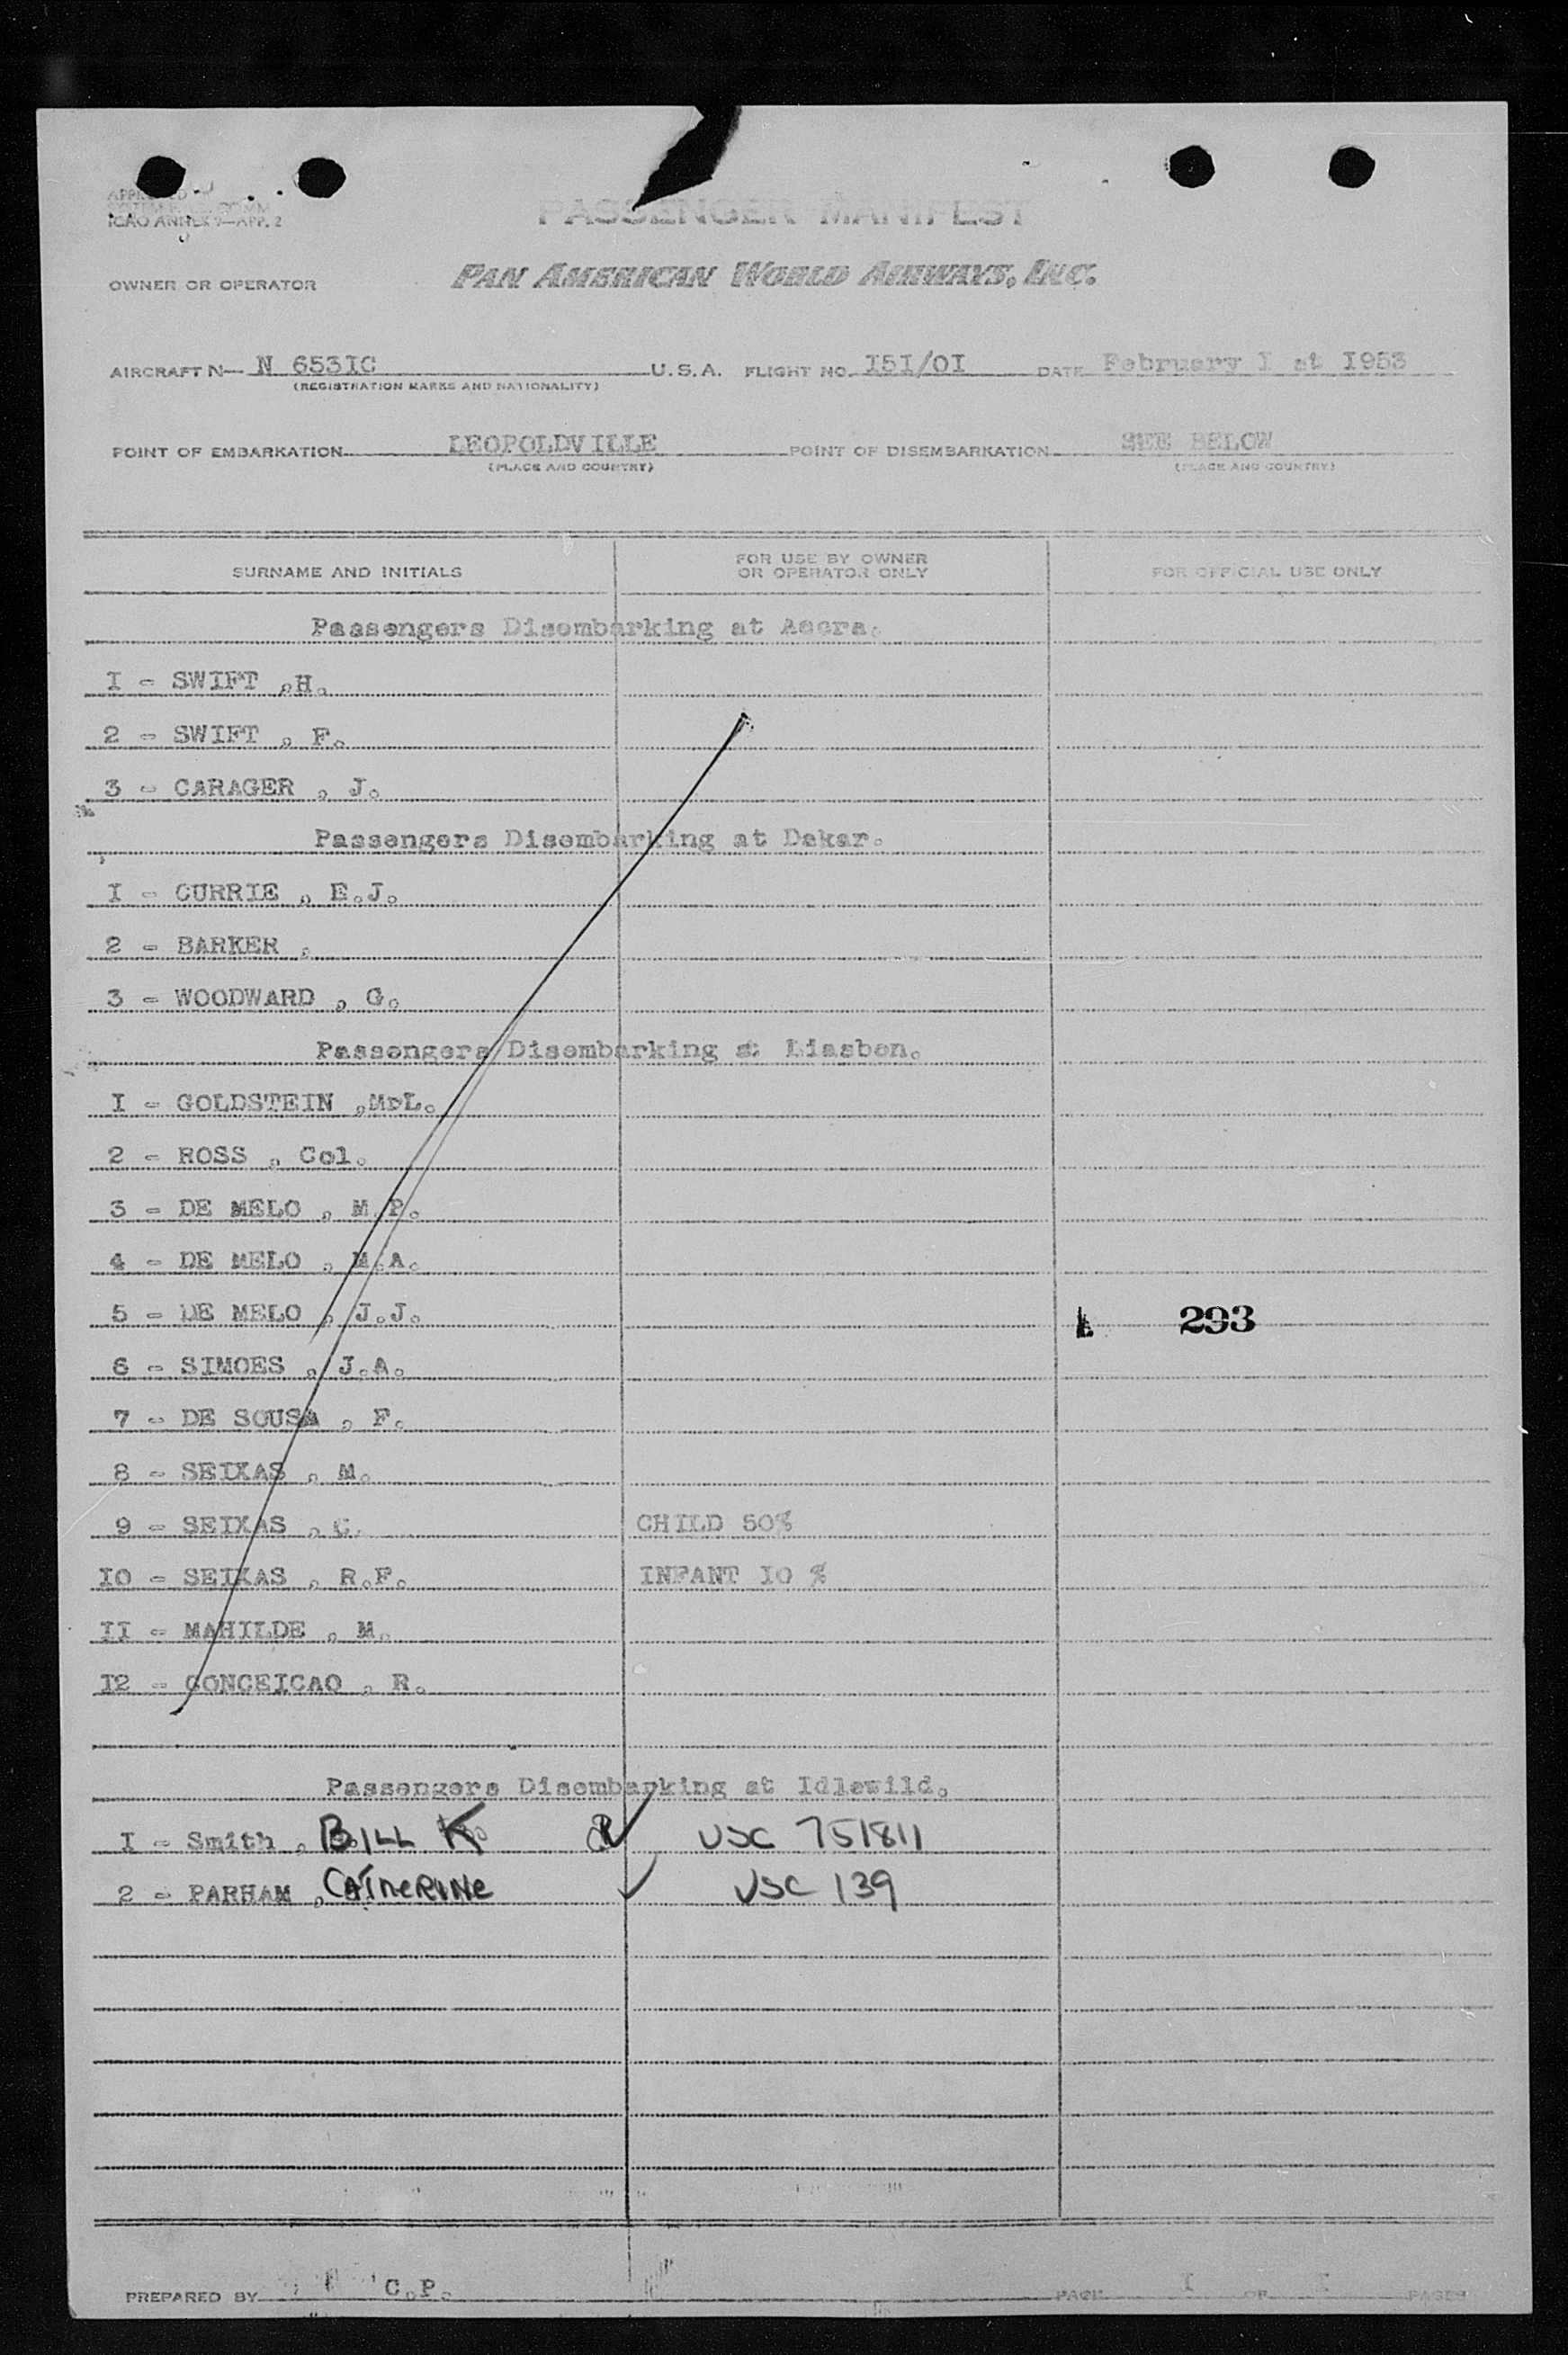 ICAO ANNEX 9—APP. 2
PASSENGER MANIFEST
OWNER OR OPERATOR PAN AMERICAN WORLD AIRWAYS, INC.
AIRCRAFT N— N 653IC U.S.A. FLIGHT NO. I5I/0I DATE February I st I953
(REGISTRATION MARKS AND NATIONALITY)
POINT OF EMBARKATION LEOPOLDVILLE POINT OF DISEMBARKATION SEE BELOW
(PLACE AND COUNTRY) (PLACE AND COUNTRY)
SURNAME AND INITIALS FOR USE BY OWNER OR OPERATOR ONLY FOR OFFICIAL USE ONLY
Passengers Disembarking at Accra.
I - SWIFT ,H.
2 - SWIFT , F.
3 - CARAGER , J.
Passengers Disembarking at Dakar.
I - CURRIE , E.J.
2 - BARKER ,
3 - WOODWARD , G.
Passengers Disembarking at Lissbon.
I - GOLDSTEIN ,MrL.
2 - ROSS , Col.
3 - DE MELO , M.P.
4 - DE MELO , M.A.
5 - DE MELO , J.J. 293
6 - SIMOES , J.A.
7 - DE SOUSA , F.
8 - SEIXAS , M.
9 - SEIXAS , C. CHILD 50%
I0 - SEIXAS , R.F. INFANT I0 %
II - MAHILDE , M.
I2 - CONCEICAO , R.
Passengers Disembarking at Idlewild.
I - Smith , BILL K ✓ USC 751811
2 - PARHAM , CATHERINE ✓ USC 139
PREPARED BY C.P. PAGE I OF I PAGES